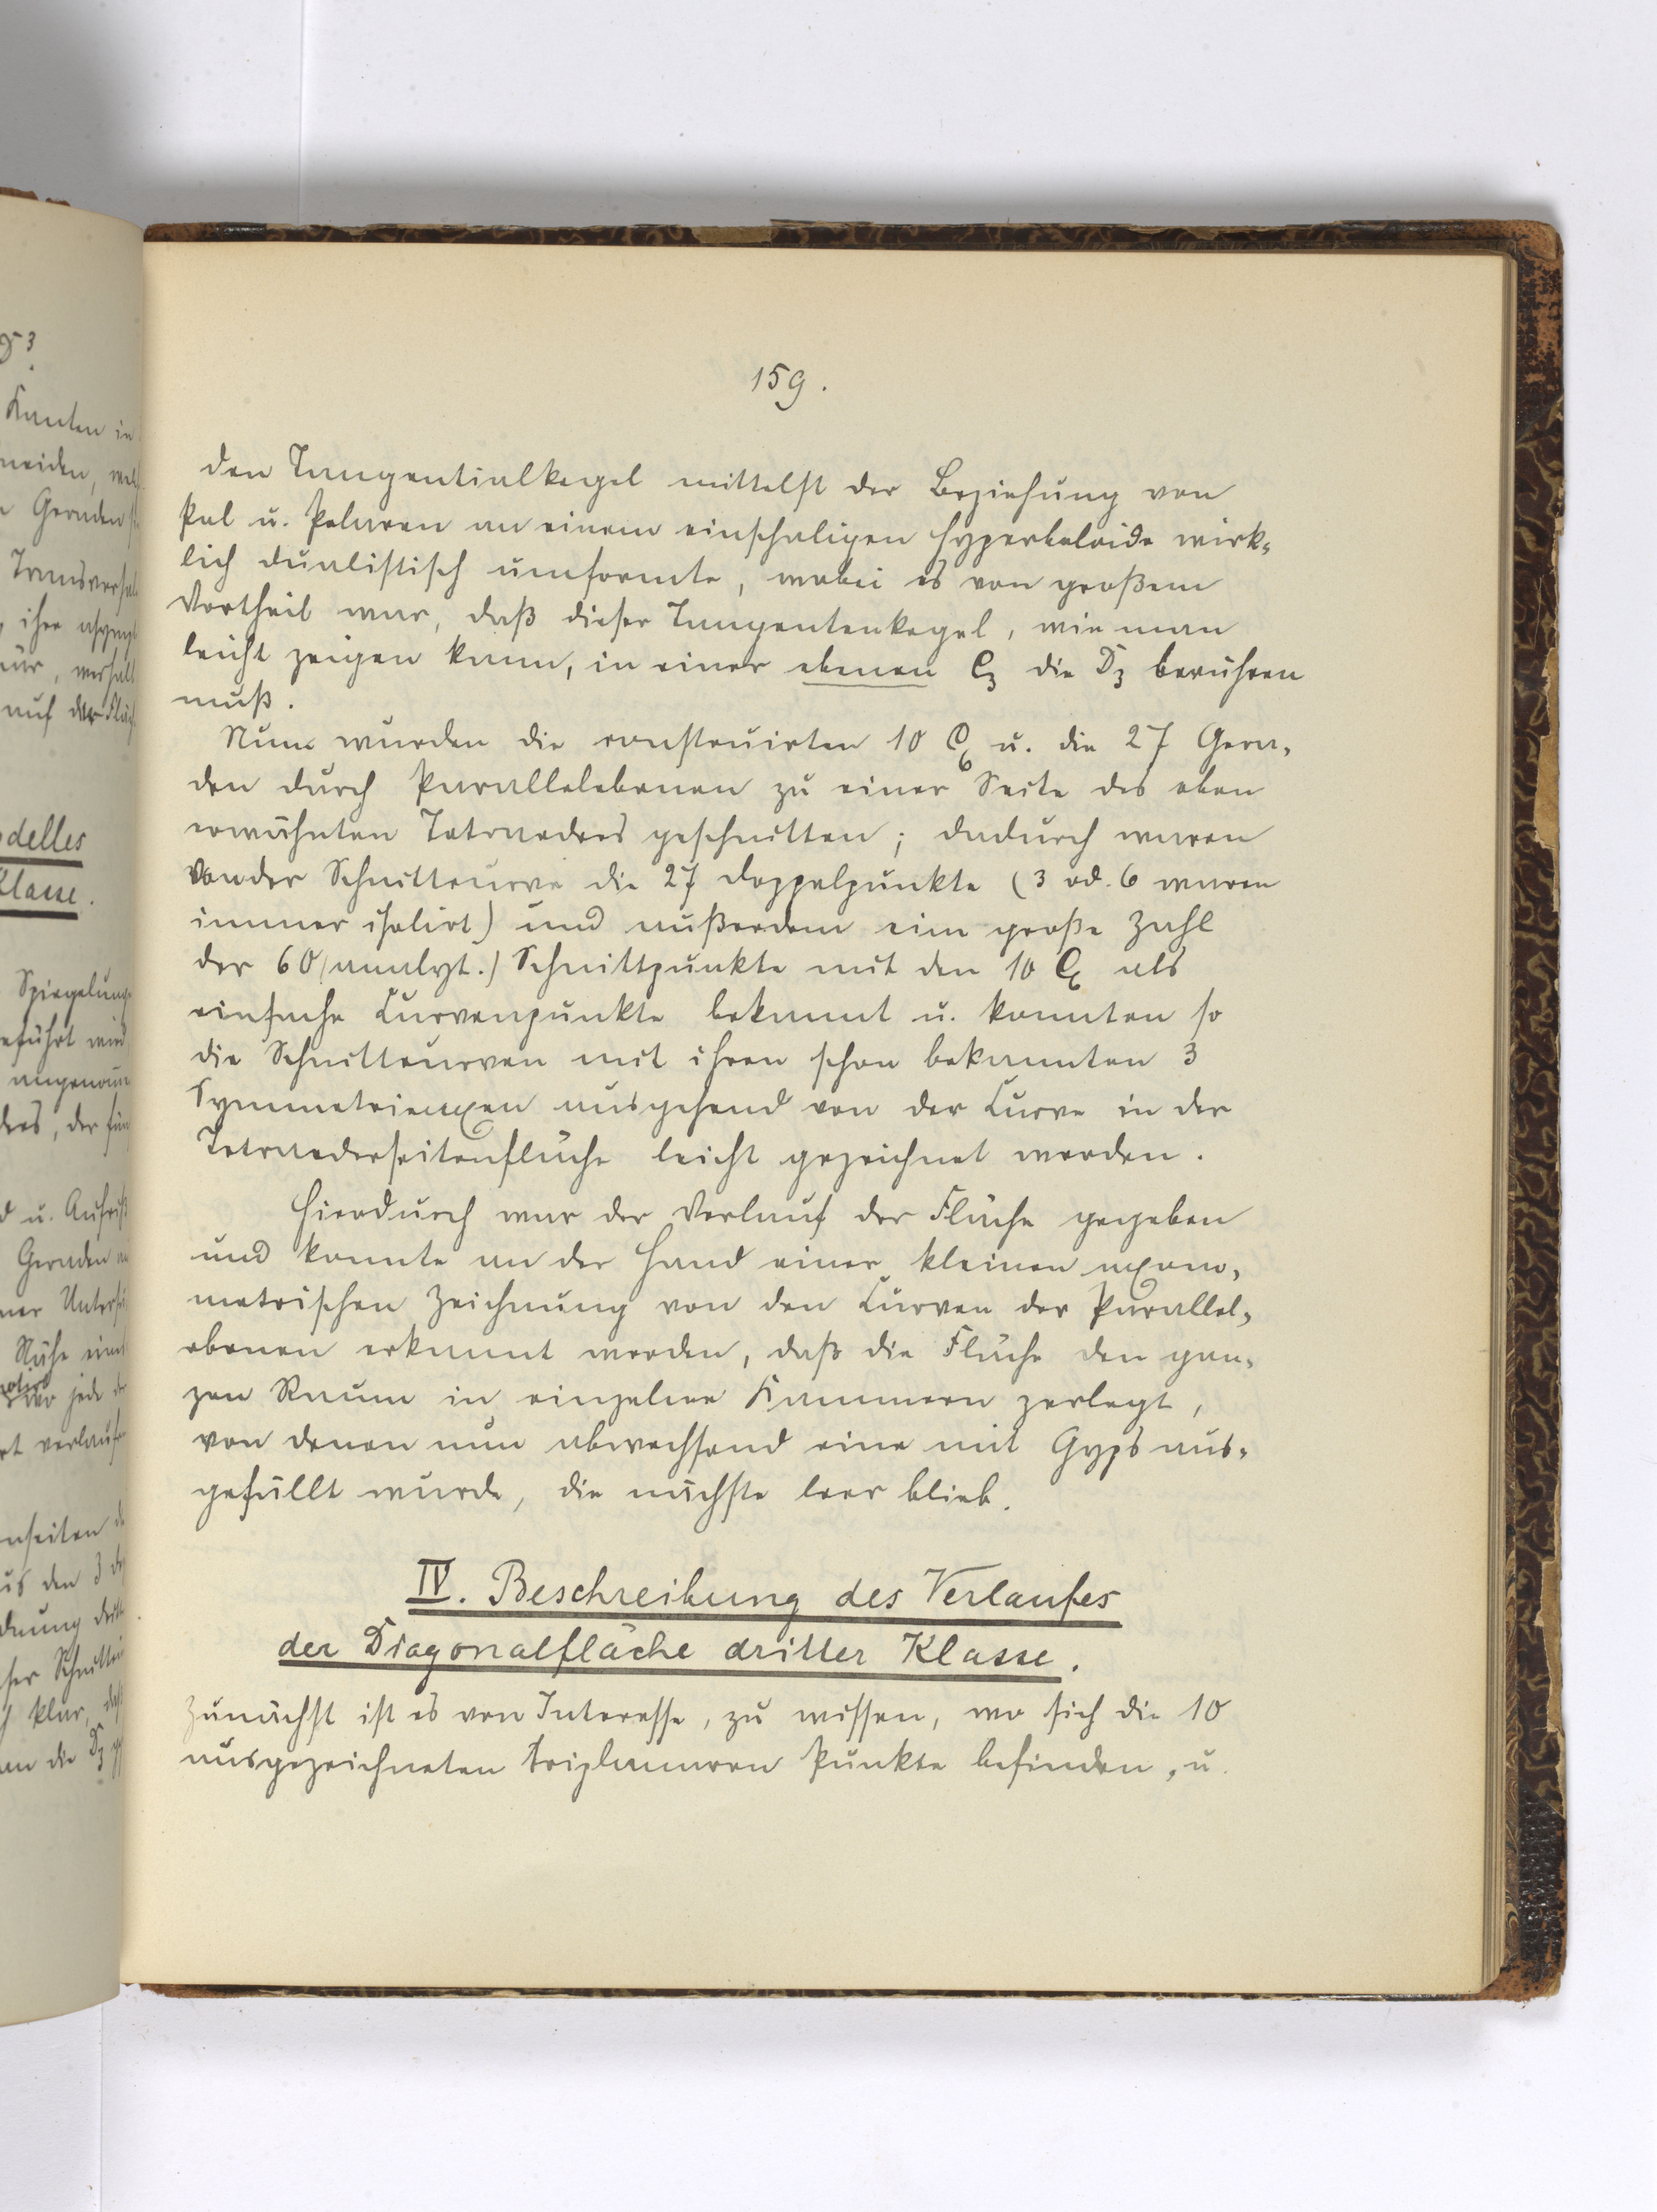 159.
den Tangentialkegel mittelst der Beziehung von
Pol u. Polaren an einem einschaligen Hyperboloide wirk=
lich dualistisch umformte, wobei es von großem
Vortheil war, daß dieser Tangentenkegel, wie man
leicht zeigen kann, in einer ebenen C3 die D3 berühren
muß.
Nun wurden die construirten 10 C6 u. die 27 Gera=
den durch Parallelebenen zu einer Seite des eben
erwähnten Tetraedres geschnitten; dadurch waren
von der Schnittcurve die 27 Doppelpunkte (3 od. 6 waren
immer isolirt) und außerdem eine große Zahl
der 60 (analyt.) Schnittpunkte mit den 10 C6 als
einfache Curvenpunkte bekannt u. konnten so
die Schnittcurven mit ihren schon bekannten 3
Symmetrieaxen ausgehend von der Curve in der
Tetraederseitenfläche leicht gezeichnet werden.
Hierdurch war der Verlauf der Fläche gegeben
und konnte an der Hand einer kleinen axono=
metrischen Zeichnung von den Curven der Parallel=
ebenen erkannt werden, daß die Fläche den gan=
zen Raum in einzelne Kammern zerlegt,
von denen nun abwechselnd eine mit Gyps aus=
gefüllt wurde, die nächste leer blieb.
IV. Beschreibung des Verlaufes
der Diagonalfläche dritter Klasse.
Zunächst ist es von Interesse, zu wissen, wo sich die 10
ausgezeichneten triplanaren Punkte befinden, u.